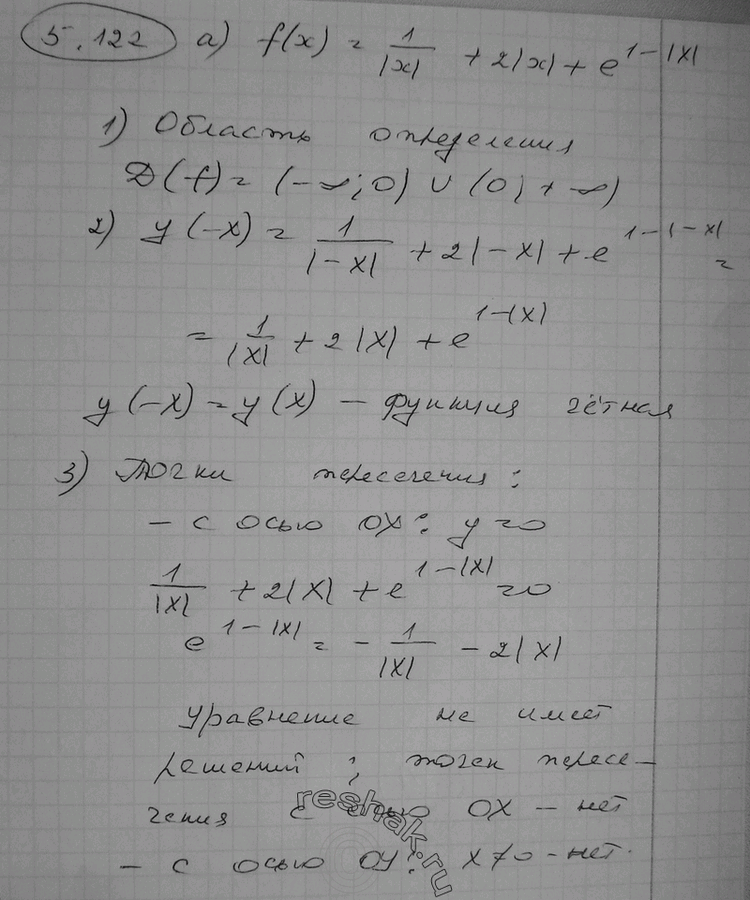 5.122 а) f(x) = 1/|x| + 2|x| + e^(1-|x|)
1) Область определения
D(f) = (-∞; 0) ∪ (0; +∞)
2) y(-x) = 1/|-x| + 2|-x| + e^(1-|-x|) =
= 1/|x| + 2|x| + e^(1-|x|)
y(-x) = y(x) — функция чётная
3) Точки пересечения:
- с осью OX: y=0
1/|x| + 2|x| + e^(1-|x|) = 0
e^(1-|x|) = - 1/|x| - 2|x|
Уравнение не имеет
решений ; точек пересе-
чения с осью OX - нет
- с осью OY: x≠0 - нет.
reshak.ru